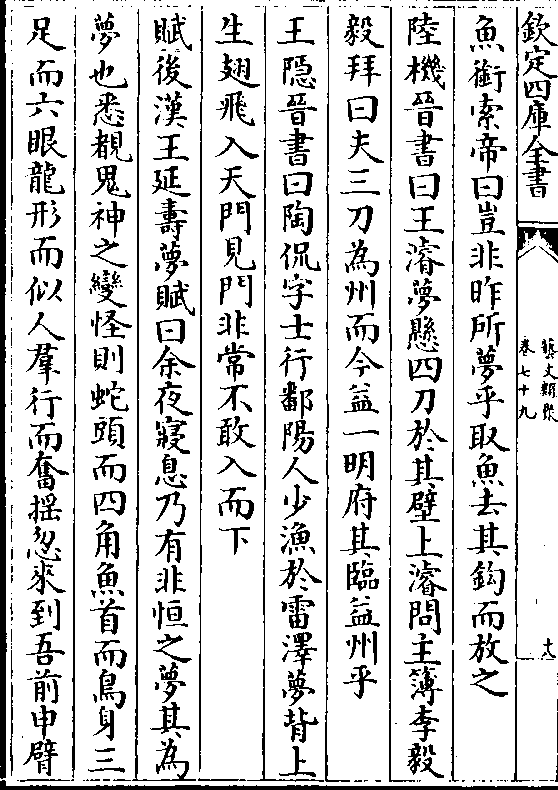 欽定四庫全書
藝文類聚
卷七十九
十八
魚銜索帝曰豈非昨所夢乎取魚去其鈎而放之
陸機晉書曰王濬夢懸四刀於其壁上濬問主簿李毅
毅拜曰夫三刀為州而今益一明府其臨益州乎
王隱晉書曰陶侃字士行鄱陽人少漁於雷澤夢背上
生翅飛入天門見門非常不敢入而下
賦後漢王延壽夢賦曰余夜寢息乃有非恒之夢其為
夢也悉覩鬼神之變怪則蛇頭而四角魚首而鳥身三
足而六眼龍形而似人羣行而奮搖忽來到吾前申臂